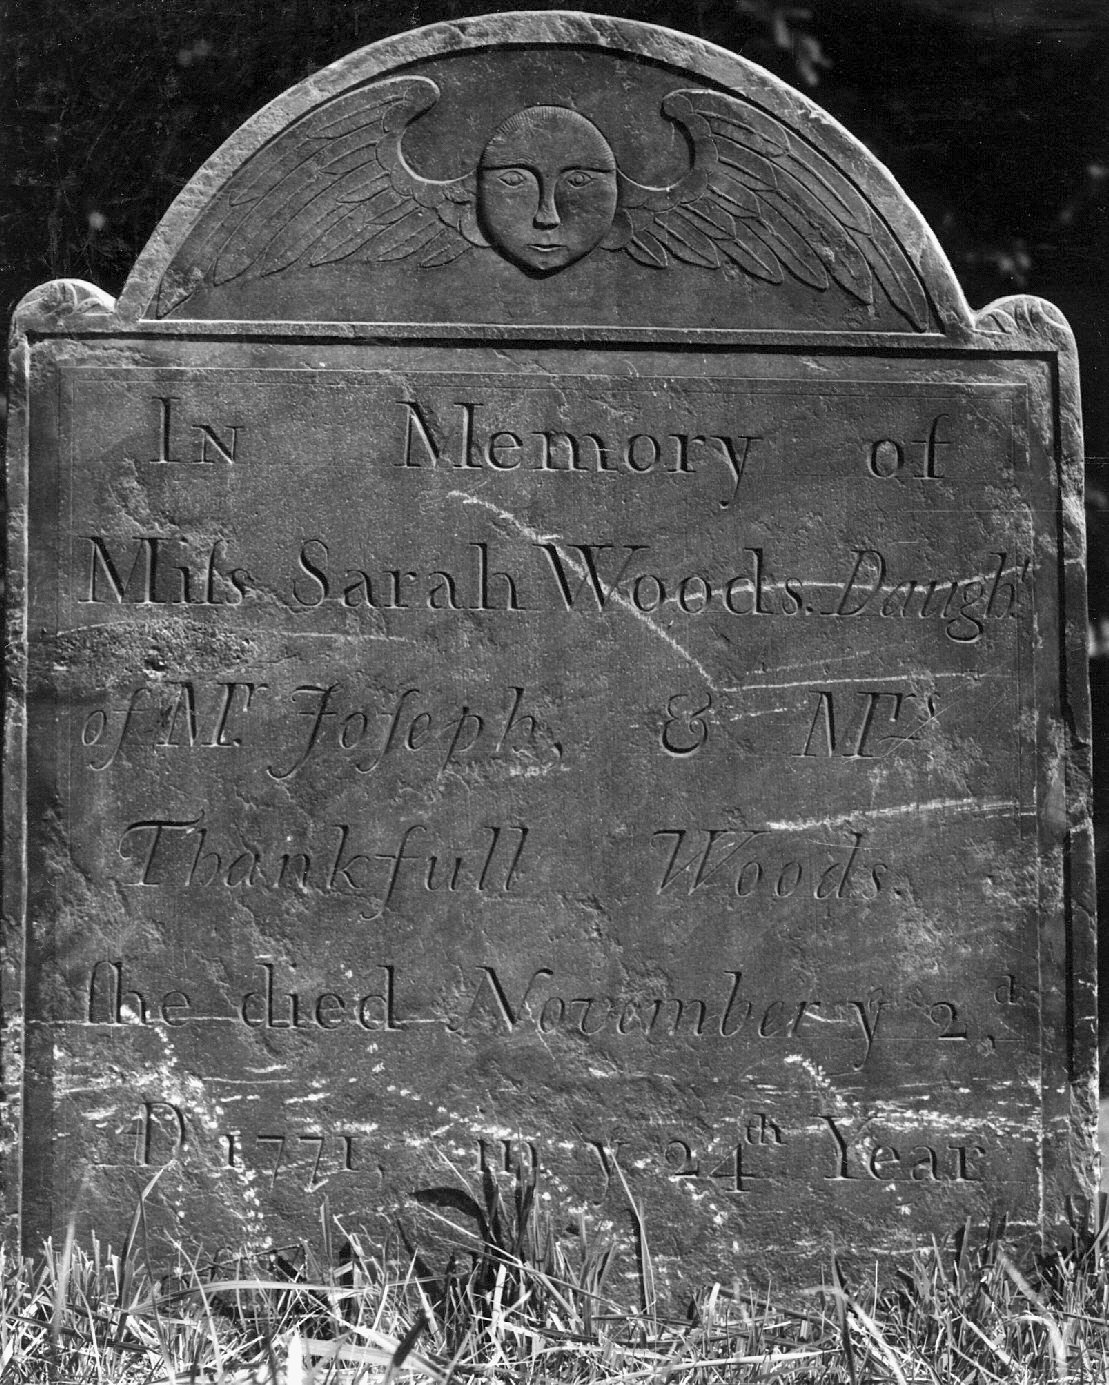 In Memory of
Miſs Sarah Woods. Daughᵗ
of Mʳ. Joſeph, & Mʳˢ
Thankfull Woods.
ſhe died November y 2,ᵈ
D 1771, in y 24ᵗʰ Year